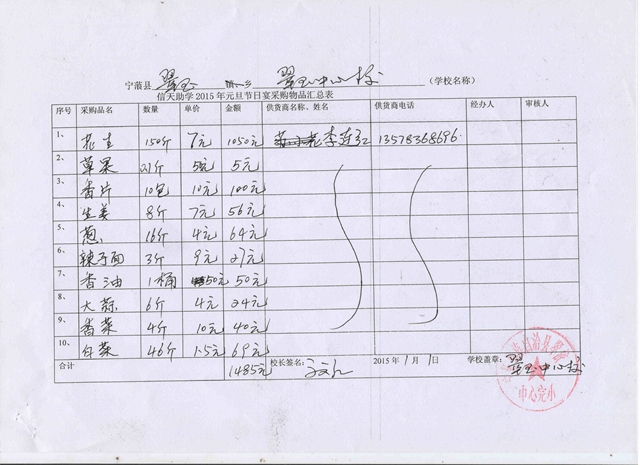 宁蒗县 翠玉 镇、乡 翠玉中心校 (学校名称)
倍天助学2015年元旦节日宴采购物品汇总表
序号 采购品名 数量 单价 金额 供货商名称、姓名 供货商电话 经办人 审核人
1、 花生 150斤 7元 1050元 李连江 13578368696
2、 草果 1斤 5元 5元
3、 香片 10包 10元 100元
4、 生姜 8斤 7元 56元
5、 葱 16斤 4元 64元
6、 辣子面 3斤 9元 27元
7、 香油 1桶 50元 50元
8、 大蒜 6斤 4元 24元
9、 香菜 4斤 10元 40元
10、 白菜 46斤 1.5元 69元
合计 1485元 校长签名: 2015年1月1日 学校盖章: 翠玉中心校
中心完小